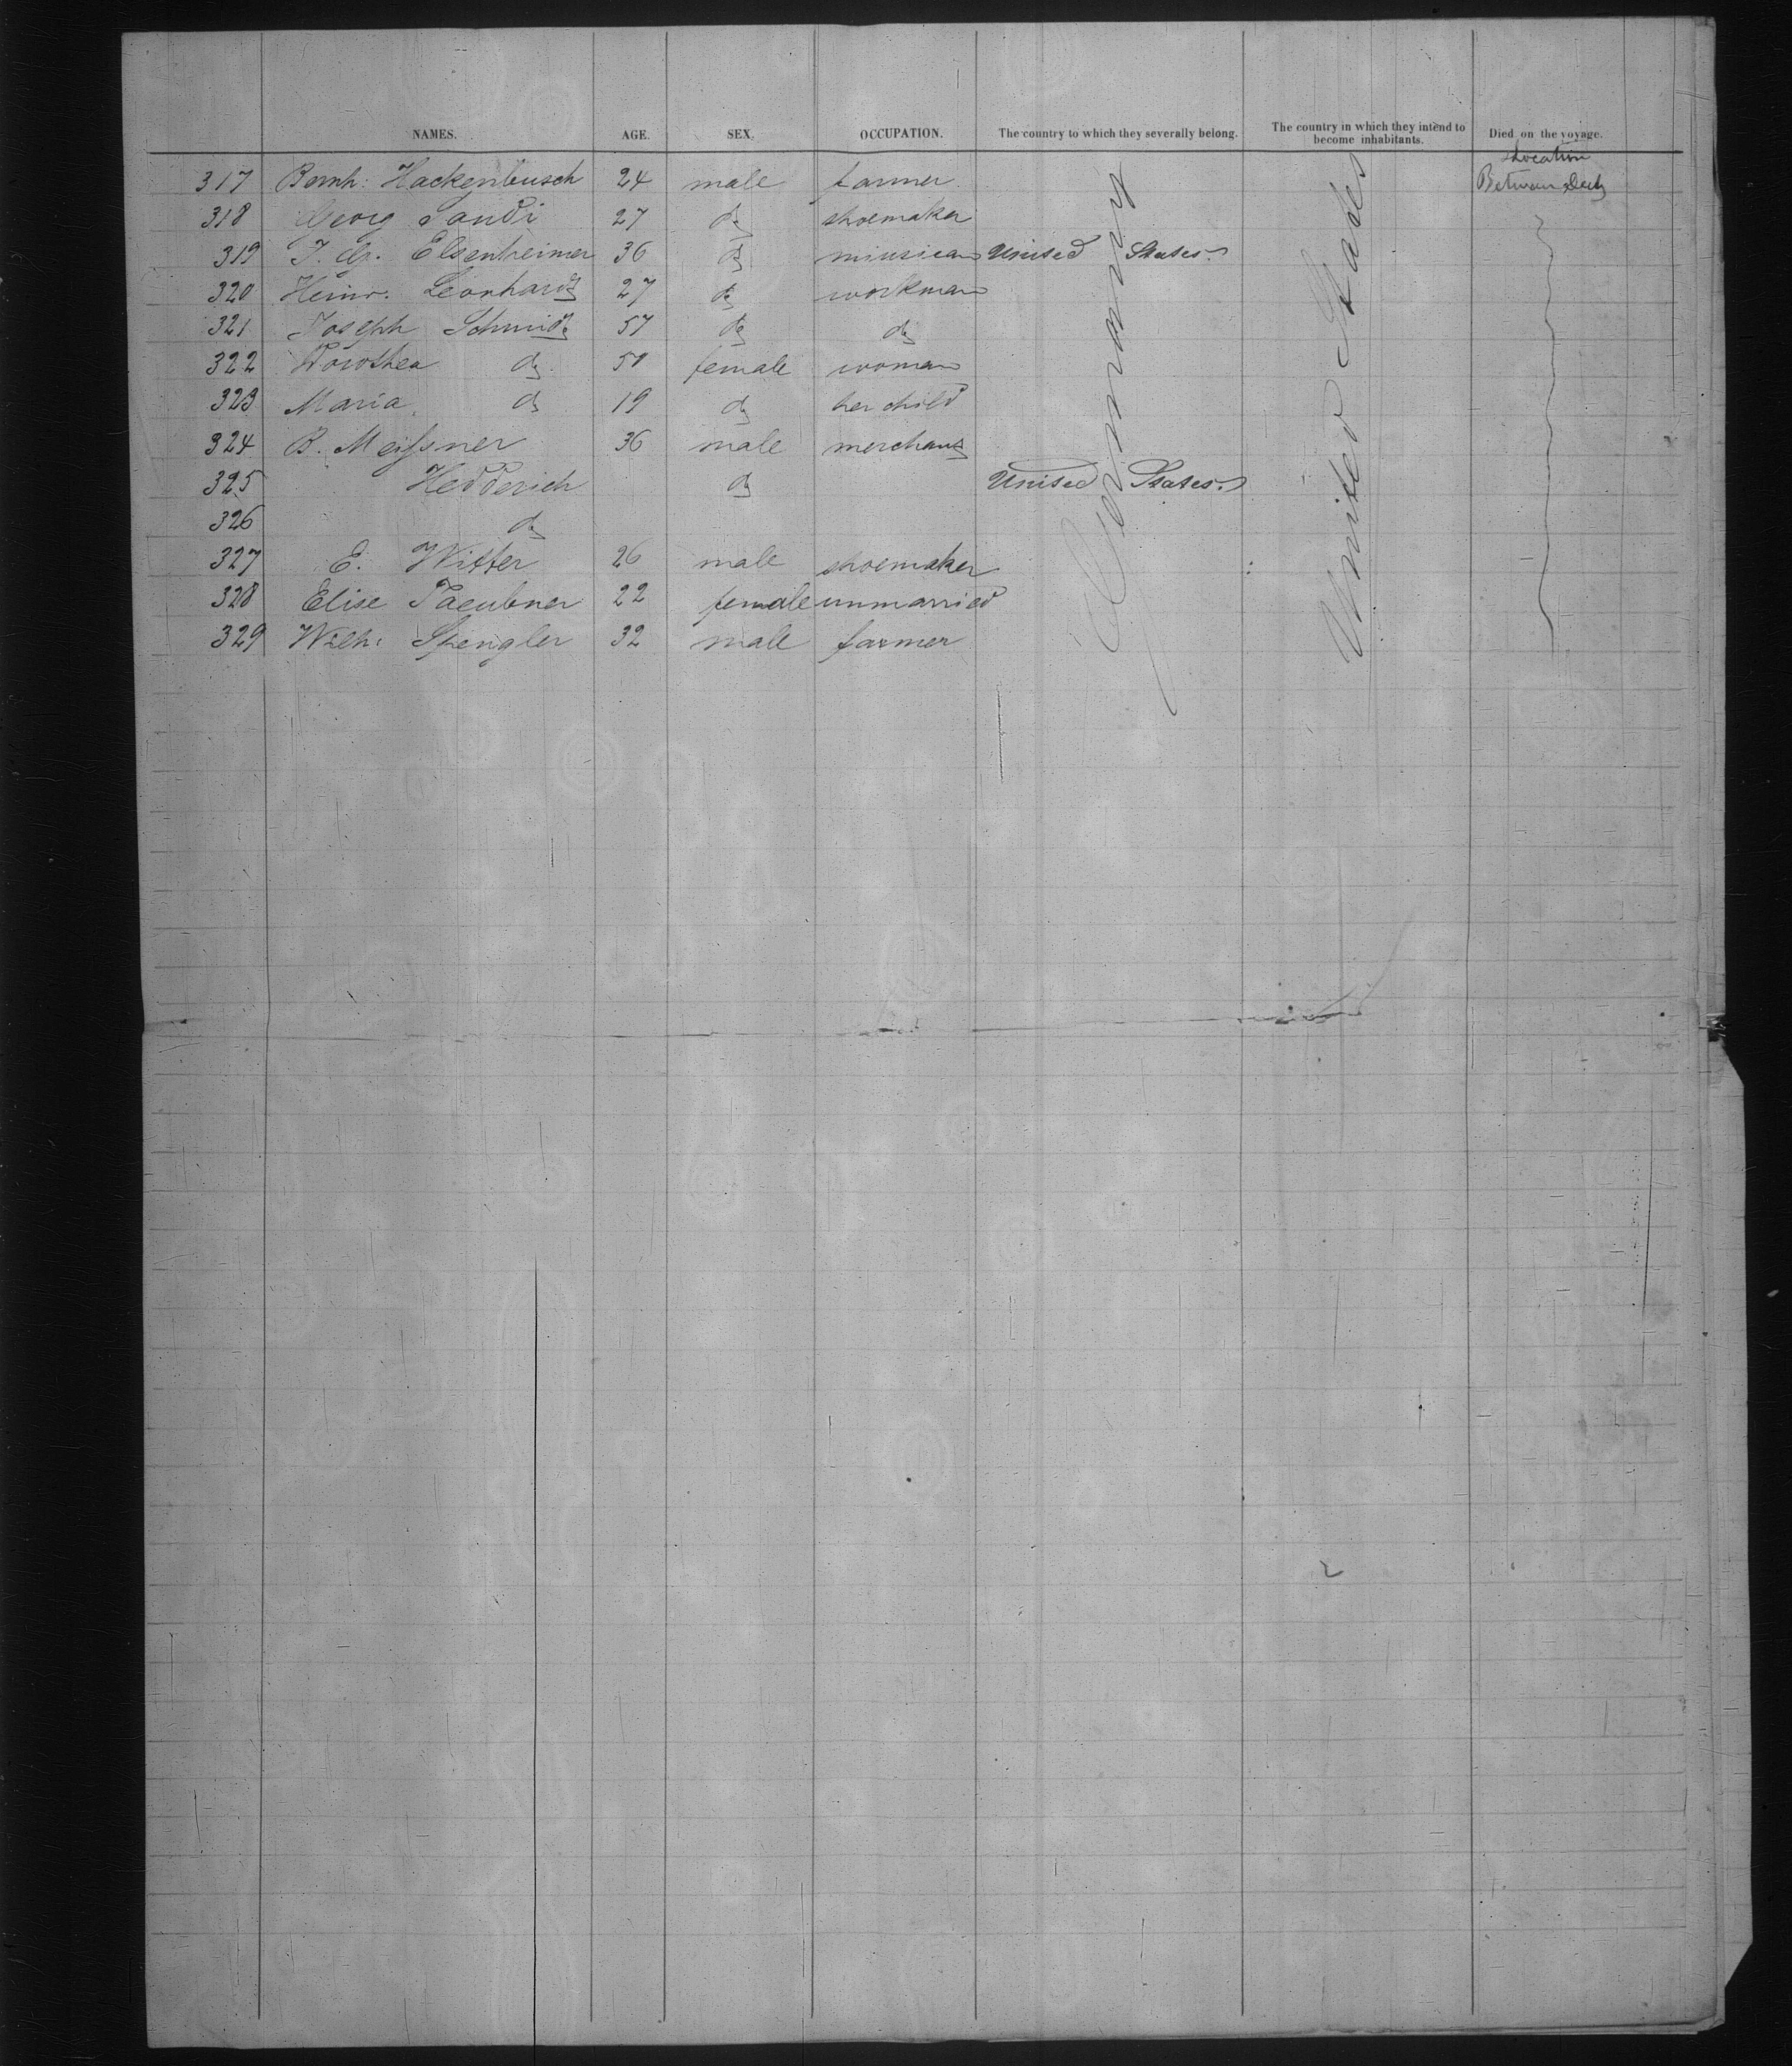 NAMES. AGE. SEX. OCCUPATION. The country to which they severally belong. The country in which they intend to become inhabitants. Died on the voyage.
Location
317 Bernh: Hackenbusch 24 male farmer Between Deck
318 Georg Sandi 27 do shoemaker
319 J. G. Elsenheimer 36 do miusican United States.
320 Heinr. Leonhardt 27 do workman
321 Joseph Schmidt 57 do do
322 Dorothea do 50 female woman
323 Maria do 19 do her child
324 B. Meissner 36 male merchant
325 Hedderich do United States.
326 do
327 E. Witter 26 male shoemaker
328 Elise Taeubner 22 female unmarried
329 Wilh: Spengler 32 male farmer
Germany
United States